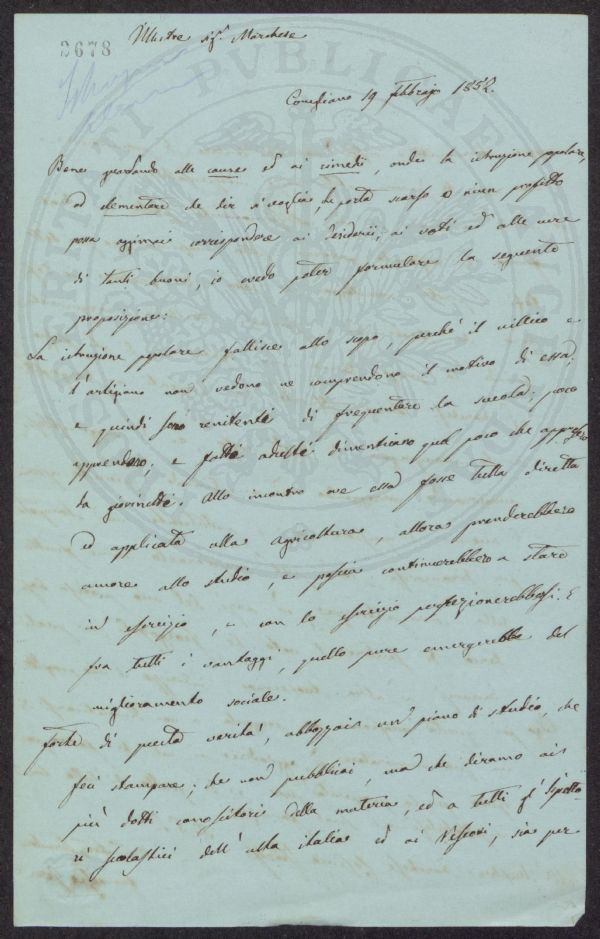 2678
Illustre sig.r Marchese
Conegliano 19 febbrajo 1852.
Bene guardando alle cause ed ai rimedii, onde la istruzione popolare,
od elementare che dir si voglia, che porta scarso o niun profitto
possa oggimai corrispondere ai desiderii, ai voti ed alle cure
di tanti buoni, io credo poter formulare la seguente
proposizione:
La istruzione popolare fallisce allo scopo, perchè il villico e
l'artigiano non vedono ne comprendono il motivo di essa;
e quindi sono renitenti di frequentare la scuola; poco
apprendono; e fatti adulti dimenticano quel poco che appresero
da giovinetti. Allo incontro ove essa fosse tutta diretta
ed applicata alla agricoltura, allora prenderebbero
amore allo studio, e poscia continuerebbero a stare
in esercizio, e con lo esercizio perfezionerebbesi. E
fra tutti i vantaggi, quello pure emergerebbe del
miglioramento sociale.
Forte di questa verità, abbozzai un piano di studio, che
feci stampare; che non pubblicai, ma che diramo ai
più dotti conoscitori della materia, ed a tutti gl'Ispetto-
ri scolastici dell'alta italia ed ai Vescovi, sia per